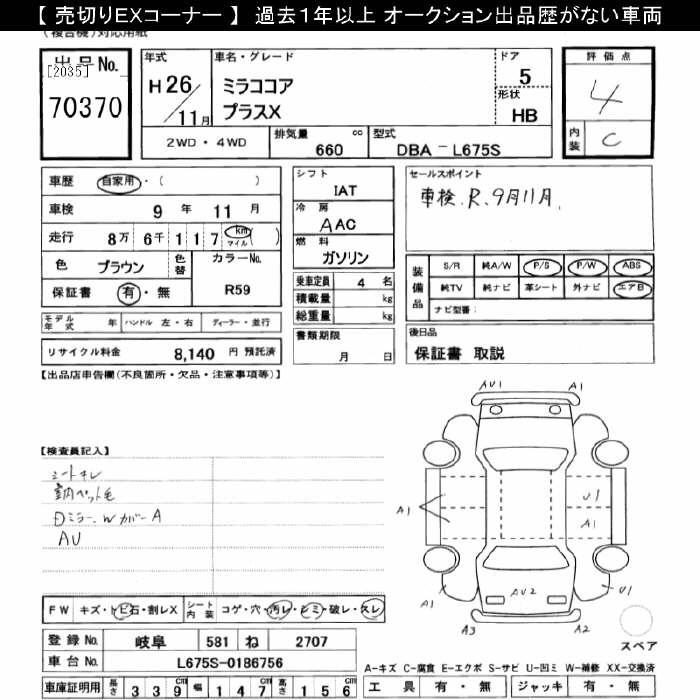 【 売切りEXコーナー 】 過去1年以上 オークション出品歴がない車両
(複合機)対応用紙
出品No.
[2035]
70370
年式
H 26/11月
車名・グレード
ミラココア
プラスX
ドア 5
形状 HB
評価点
4
内装 C
2WD・4WD
排気量 cc 660
型式 DBA-L675S
車歴 自家用・( )
車検 9 年 11 月
走行 8万 6千 1 1 7 km マイル ( )
色 ブラウン
色替
カラーNo. R59
保証書 有・無
モデル年式 年 ハンドル 左・右 ディーラー・並行
リサイクル料金 8,140 円 預託済
シフト IAT
冷房 AAC
燃料 ガソリン
乗車定員 4 名
積載量 kg
総重量 kg
書類期限
月 日
セールスポイント
車検.R.9月11月.
装備品
S/R 純A/W P/S P/W ABS
純TV 純ナビ 革シート 外ナビ エアB
ナビ型番:
後日品
保証書 取説
【出品店申告欄(不良箇所・欠品・注意事項等)】
【検査員記入】
シートキレ
室内ペット毛
Dミラー.Wカバー A
AU
AU1 A1
A1 U1
A1
A1 AU2 U1
A3 A2
スペア
FW キズ・トビ石・割レX シート内装 コゲ・穴・汚レ・シミ・破レ・スレ
登録No. 岐阜 581 ね 2707
車台No. L675S-0186756
車庫証明用 長さ 3 3 9 cm 幅 1 4 7 cm 高さ 1 5 6 cm
A-キズ C-腐食 E-エクボ S-サビ U-凹ミ W-補修 XX-交換済
工具 有・無 ジャッキ 有・無